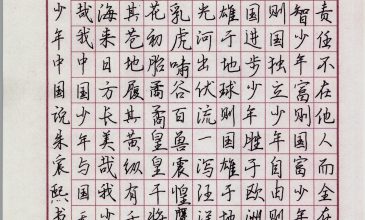 责任不在他人而全在
智少年富则国富少年
则国独立少年自由则
国进步少年胜于欧洲
雄于地球则国雄于地
光河出伏流一泻汪洋
乳虎啸谷百兽震惶鹰
花初胎矞矞皇皇干将
其苍地履其黄纵有千
海来日方长美哉我少
哉我中国少年与国无
少年中国说朱宸熙书